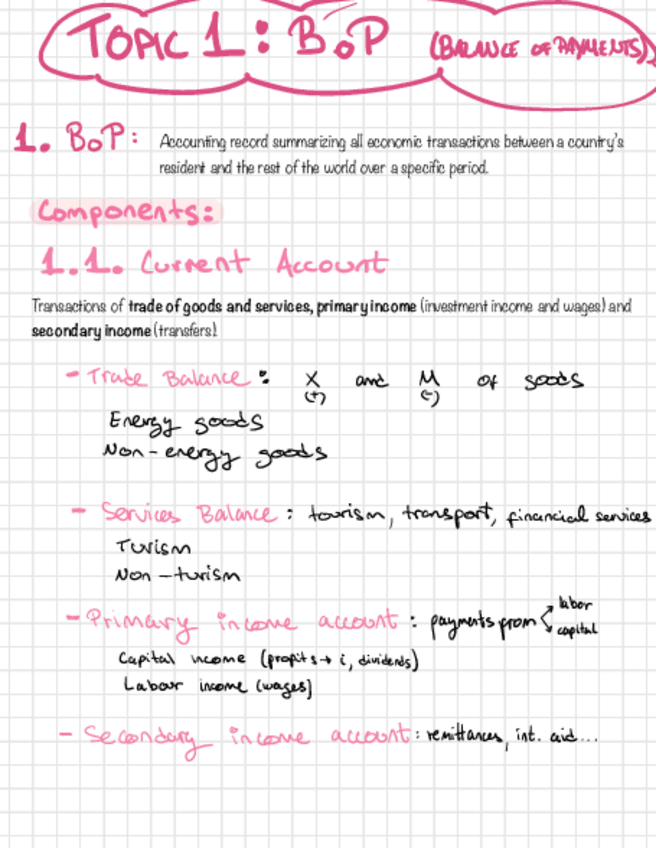 TOPIC 1: BoP (BALANCE OF PAYMENTS)
1. BoP: Accounting record summarizing all economic transactions between a country's
resident and the rest of the world over a specific period.
Components:
1.1. Current Account
Transactions of trade of goods and services, primary income (investment income and wages) and
secondary income (transfers).
- Trade Balance: X and M of goods
(+) (-)
Energy goods
Non-energy goods
- Services Balance: tourism, transport, financial services
Turism
Non-turism
- Primary income account: payments from labor
capital
Capital income (profits → i, dividends)
Labour income (wages)
- Secondary income account: remittances, int. aid...